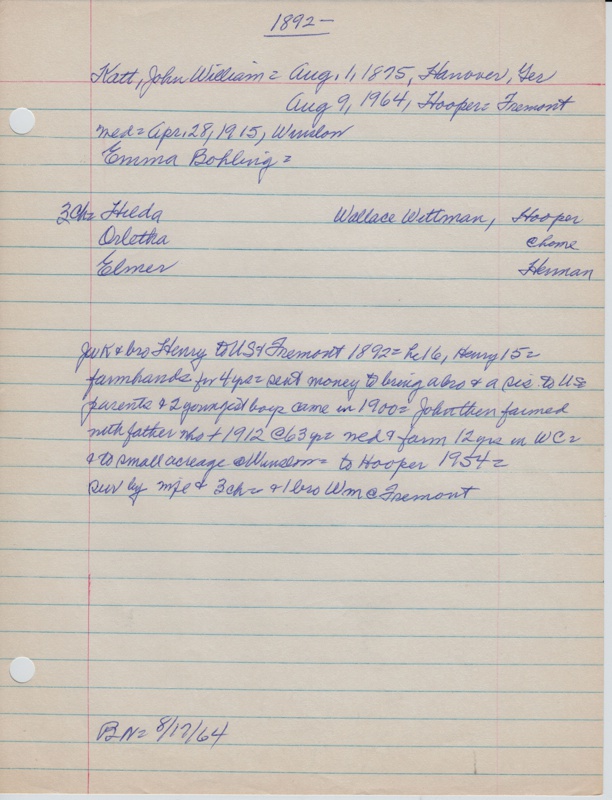 1892-
Katt, John William = Aug. 1, 1875, Hanover, Ger
Aug 9, 1964, Hooper = Fremont
med = Apr. 28, 1915, Winslow
Emma Bohling =
3ch = Hilda Wallace Wittman, Hooper
Orletha @ home
Elmer Herman
JWK & bro Henry to US & Fremont 1892 = he 16, Henry 15 =
farmhands for 4 yrs = sent money to bring a bro & a sis to US =
parents & 2 youngest boys came in 1900 = John then farmed
with father who + 1912 @ 63 yrs = med & farm 12 yrs in WC =
& to small acreage @ Winslow = to Hooper 1954 =
sur by wife & 3ch = & 1 bro Wm @ Fremont
BN = 8/17/64